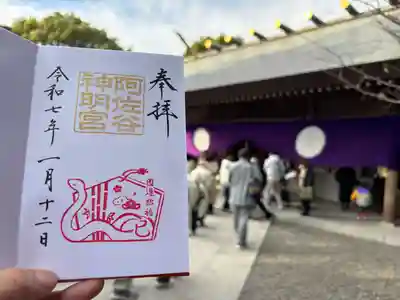 奉拝
阿佐谷
神明宮
開運招福
令和七年 一月十二日